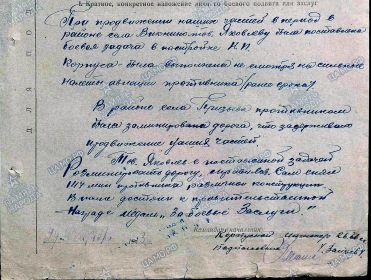 I. Краткое, конкретное изложение личного боевого подвига или заслуг
При продвижении наших частей в период в
районе села была поставлена
боевая задача в постройке Н.П.
Корпуса - была выполнена не смотря на сильное
авиации противника (ранее срока)
В районе села противником
была заминирована дорога, что задерживало
продвижение наших частей.
Тов. Яковлев с поставленной задачей
Разминировать дорогу, справился. Сам снял
114 мин противника различной конструкции.
Вполне достоин к правительственной
Награде медаль "За боевые Заслуги".
Корпусной инженер
Подполковник